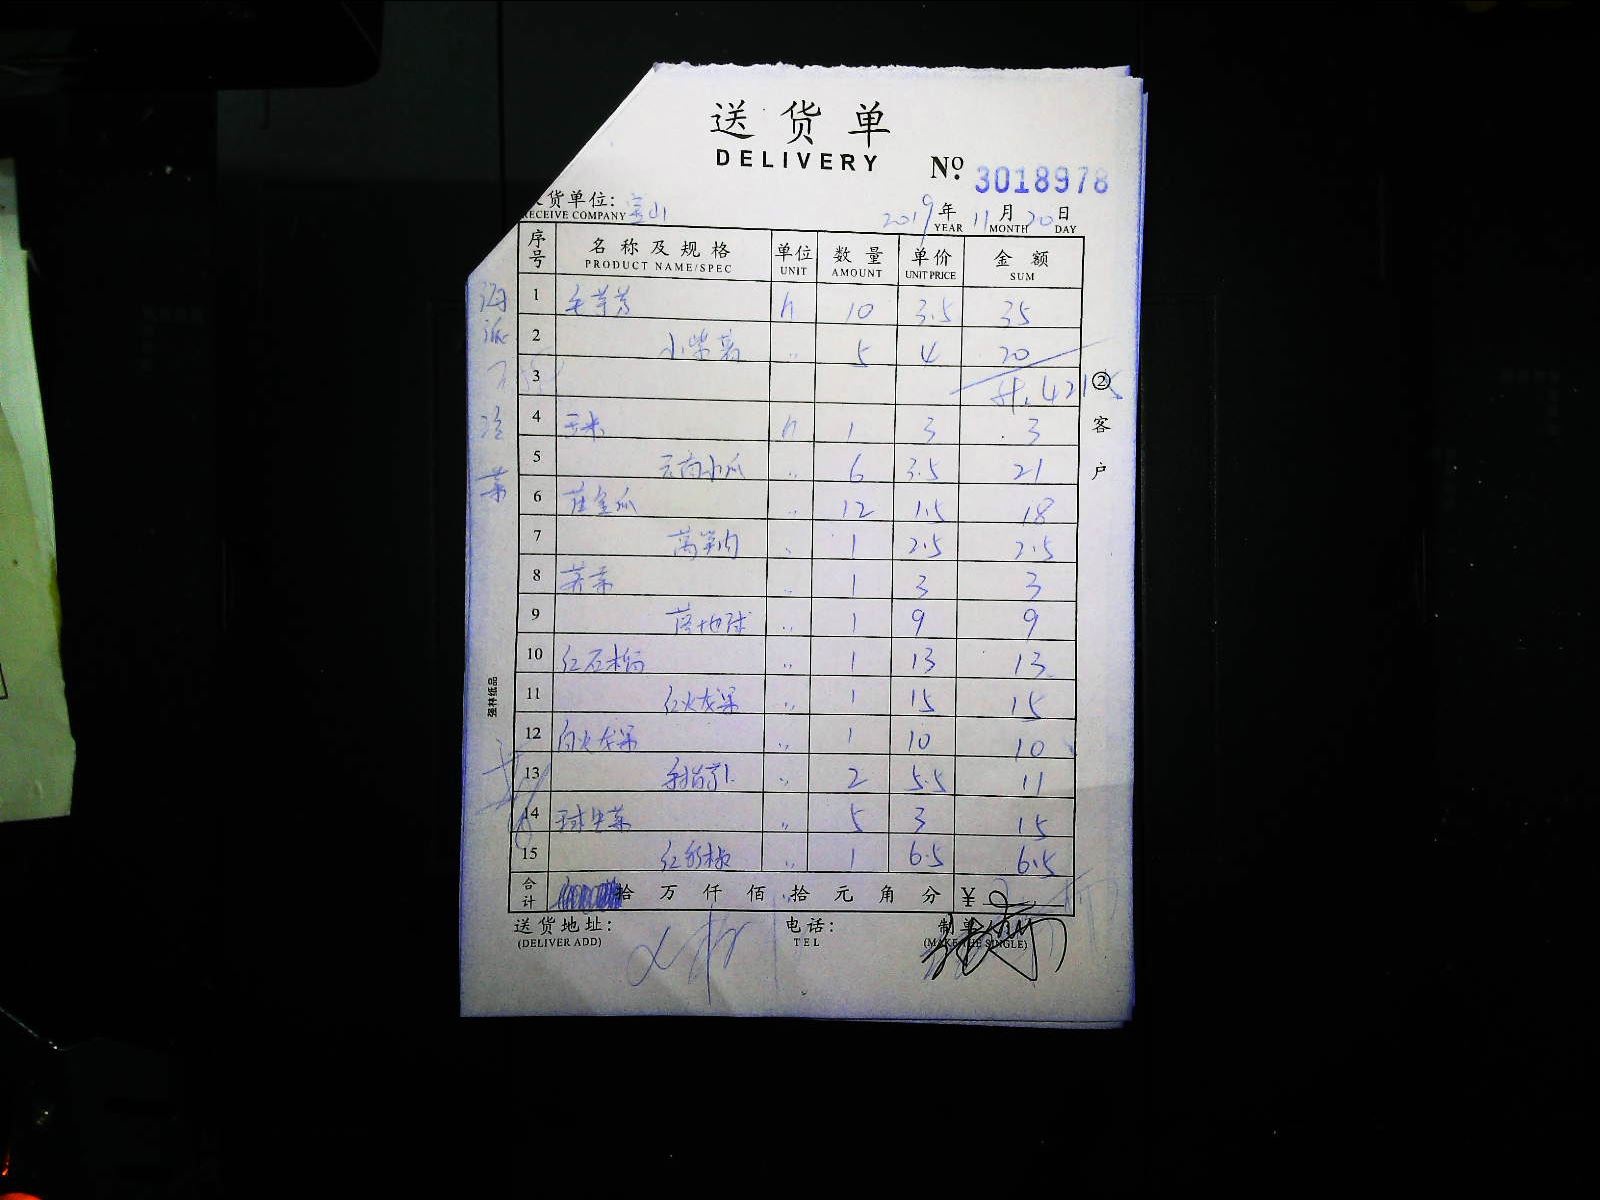 送货单
DELIVERY
No. 3018978
货单位: 宝山
RECEIVE COMPANY
2019年11月20日
YEAR MONTH DAY
序号 名称及规格 单位 数量 单价 金额
PRODUCT NAME/SPEC UNIT AMOUNT UNIT PRICE SUM
1 毛芋艿 10 3.5 35
2 小紫薯 〃 5 4 20
3 计.421.5
4 玉米 1 3 3
5 云南小瓜 〃 6 3.5 21
6 黄金瓜 〃 12 1.5 18
7 莴笋肉 〃 1 2.5 2.5
8 〃 1 3 3
9 〃 1 9 9
10 红石榴 〃 1 13 13
11 红火龙果 〃 1 15 15
12 白火龙果 〃 1 10 10
13 〃 2 5.5 11
14 球生菜 〃 5 3 15
15 红彩椒 〃 1 6.5 6.5
合计 拾万仟佰拾元角分 ¥
送货地址: 电话: 制单
(DELIVER ADD) TEL (MAKE THE SINGLE)
②客户
海派
冷菜
强林纸品